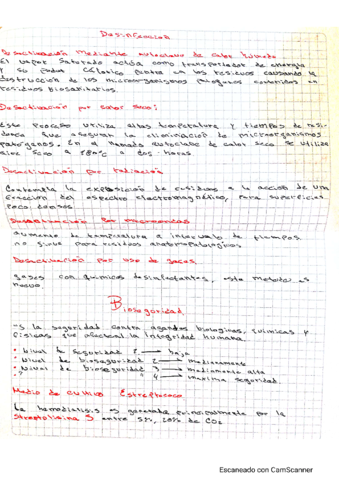 Desinfeccion
Desactivacion mediante autoclave de calor humedo
El vapor saturado actua como transportador de energia
y su poder calorico penetra en los residuos causando la
destruccion de los microorganismos patogenos contenidos en
residuos biosanitarios.
Desactivacion por calor seco:
Este proceso utiliza altas temperatura y tiempos de resi-
dencia que aseguran la eliminacion de microorganismos
patogenos. En el llamado autoclave de calor seco se utiliza
aire seco a 180°C a dos horas.
Desactivacion por radiacion
Contempla la exposicion de residuos a la accion de una
fraccion del espectro electromagnético, para superficies
poco densos.
Desactivacion por microondas
aumento de temperatura e intervalo de tiempos
no sirve para residuos anatomopatologicos
Desactivacion por uso de gases.
gases con quimicos desinfectantes, este metodo es
nuevo.
Bioseguridad.
Es la seguridad contra agentes biologicos, quimicos y
fisicos que afectan la integridad humana.
• nivel de seguridad 1 → baja
• nivel de bioseguridad 2 → medianamente
• nivel de bioseguridad 3 → medianamente alta
4 → maxima seguridad.
Medio de cultivo Estreptococo
La hemodialisis es generada principalmente por la
Streptolisina S entre 5%, 20% de CO2
Escaneado con CamScanner